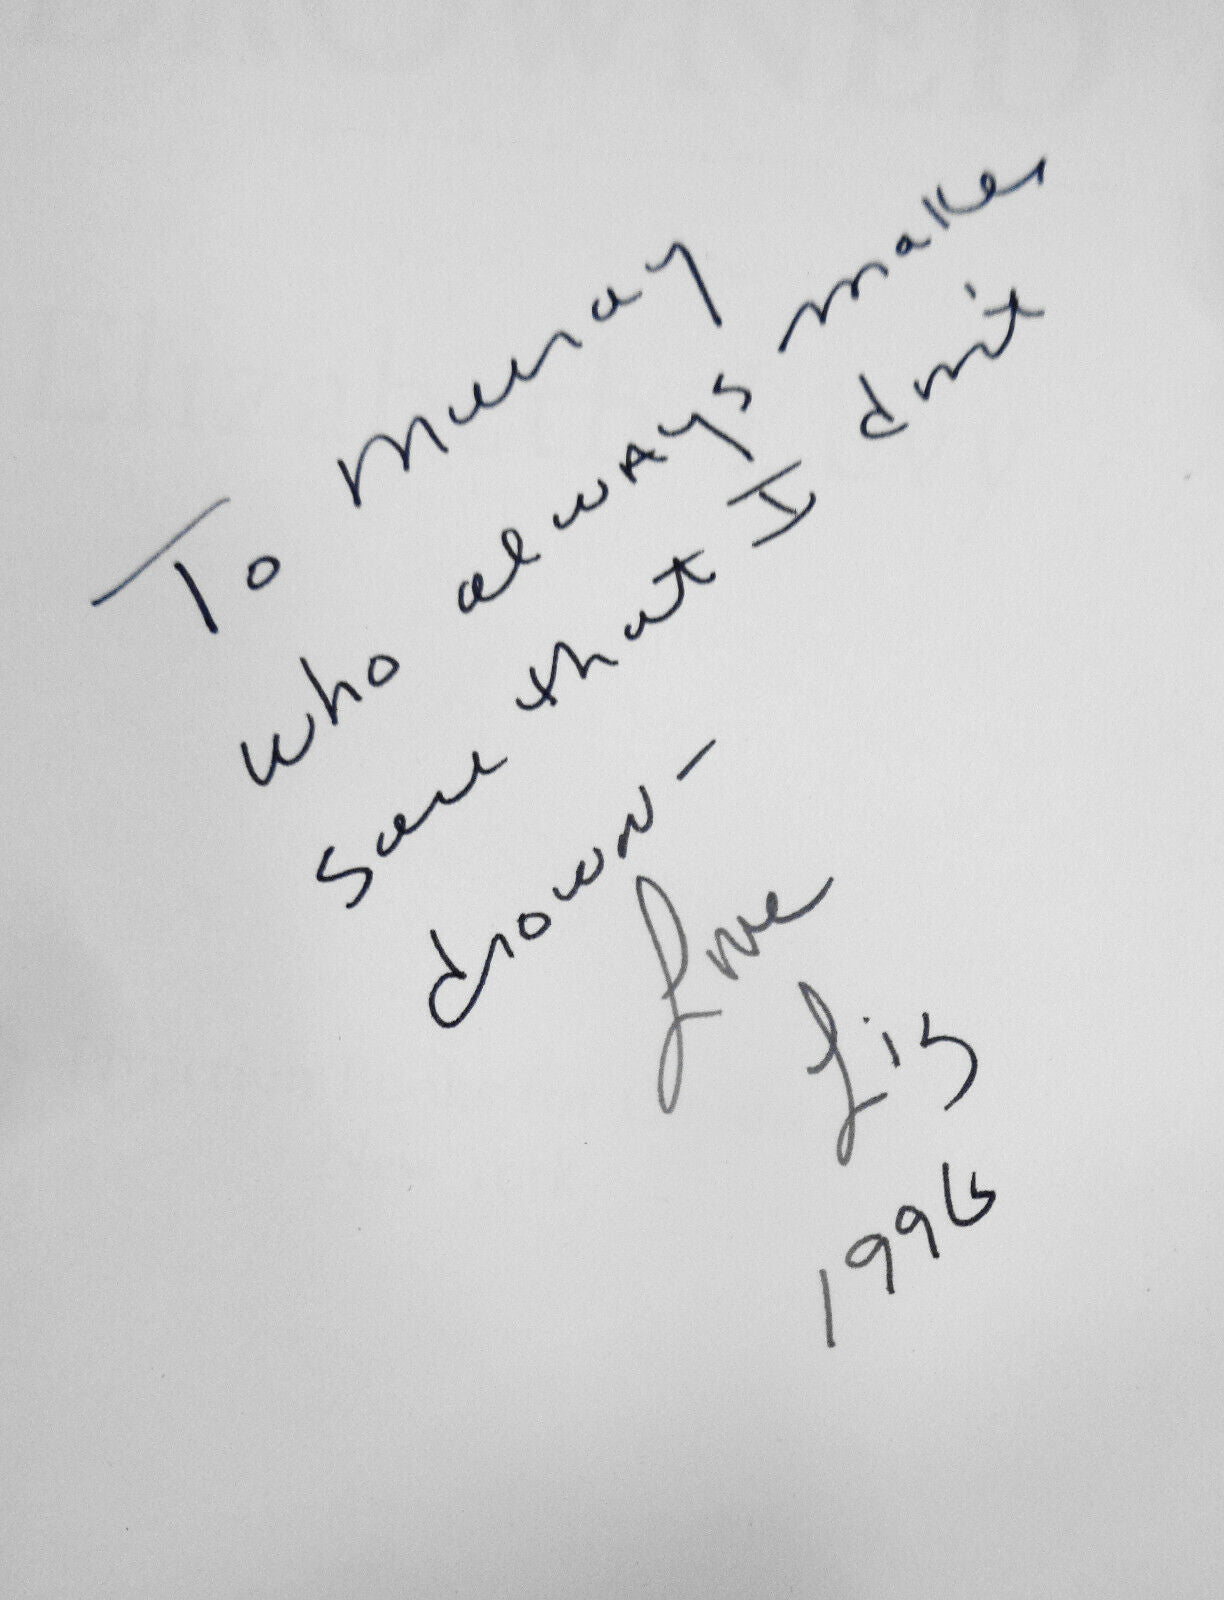 To Murray
who always makes
sure that I don't
drown -
Love
Liz
1996